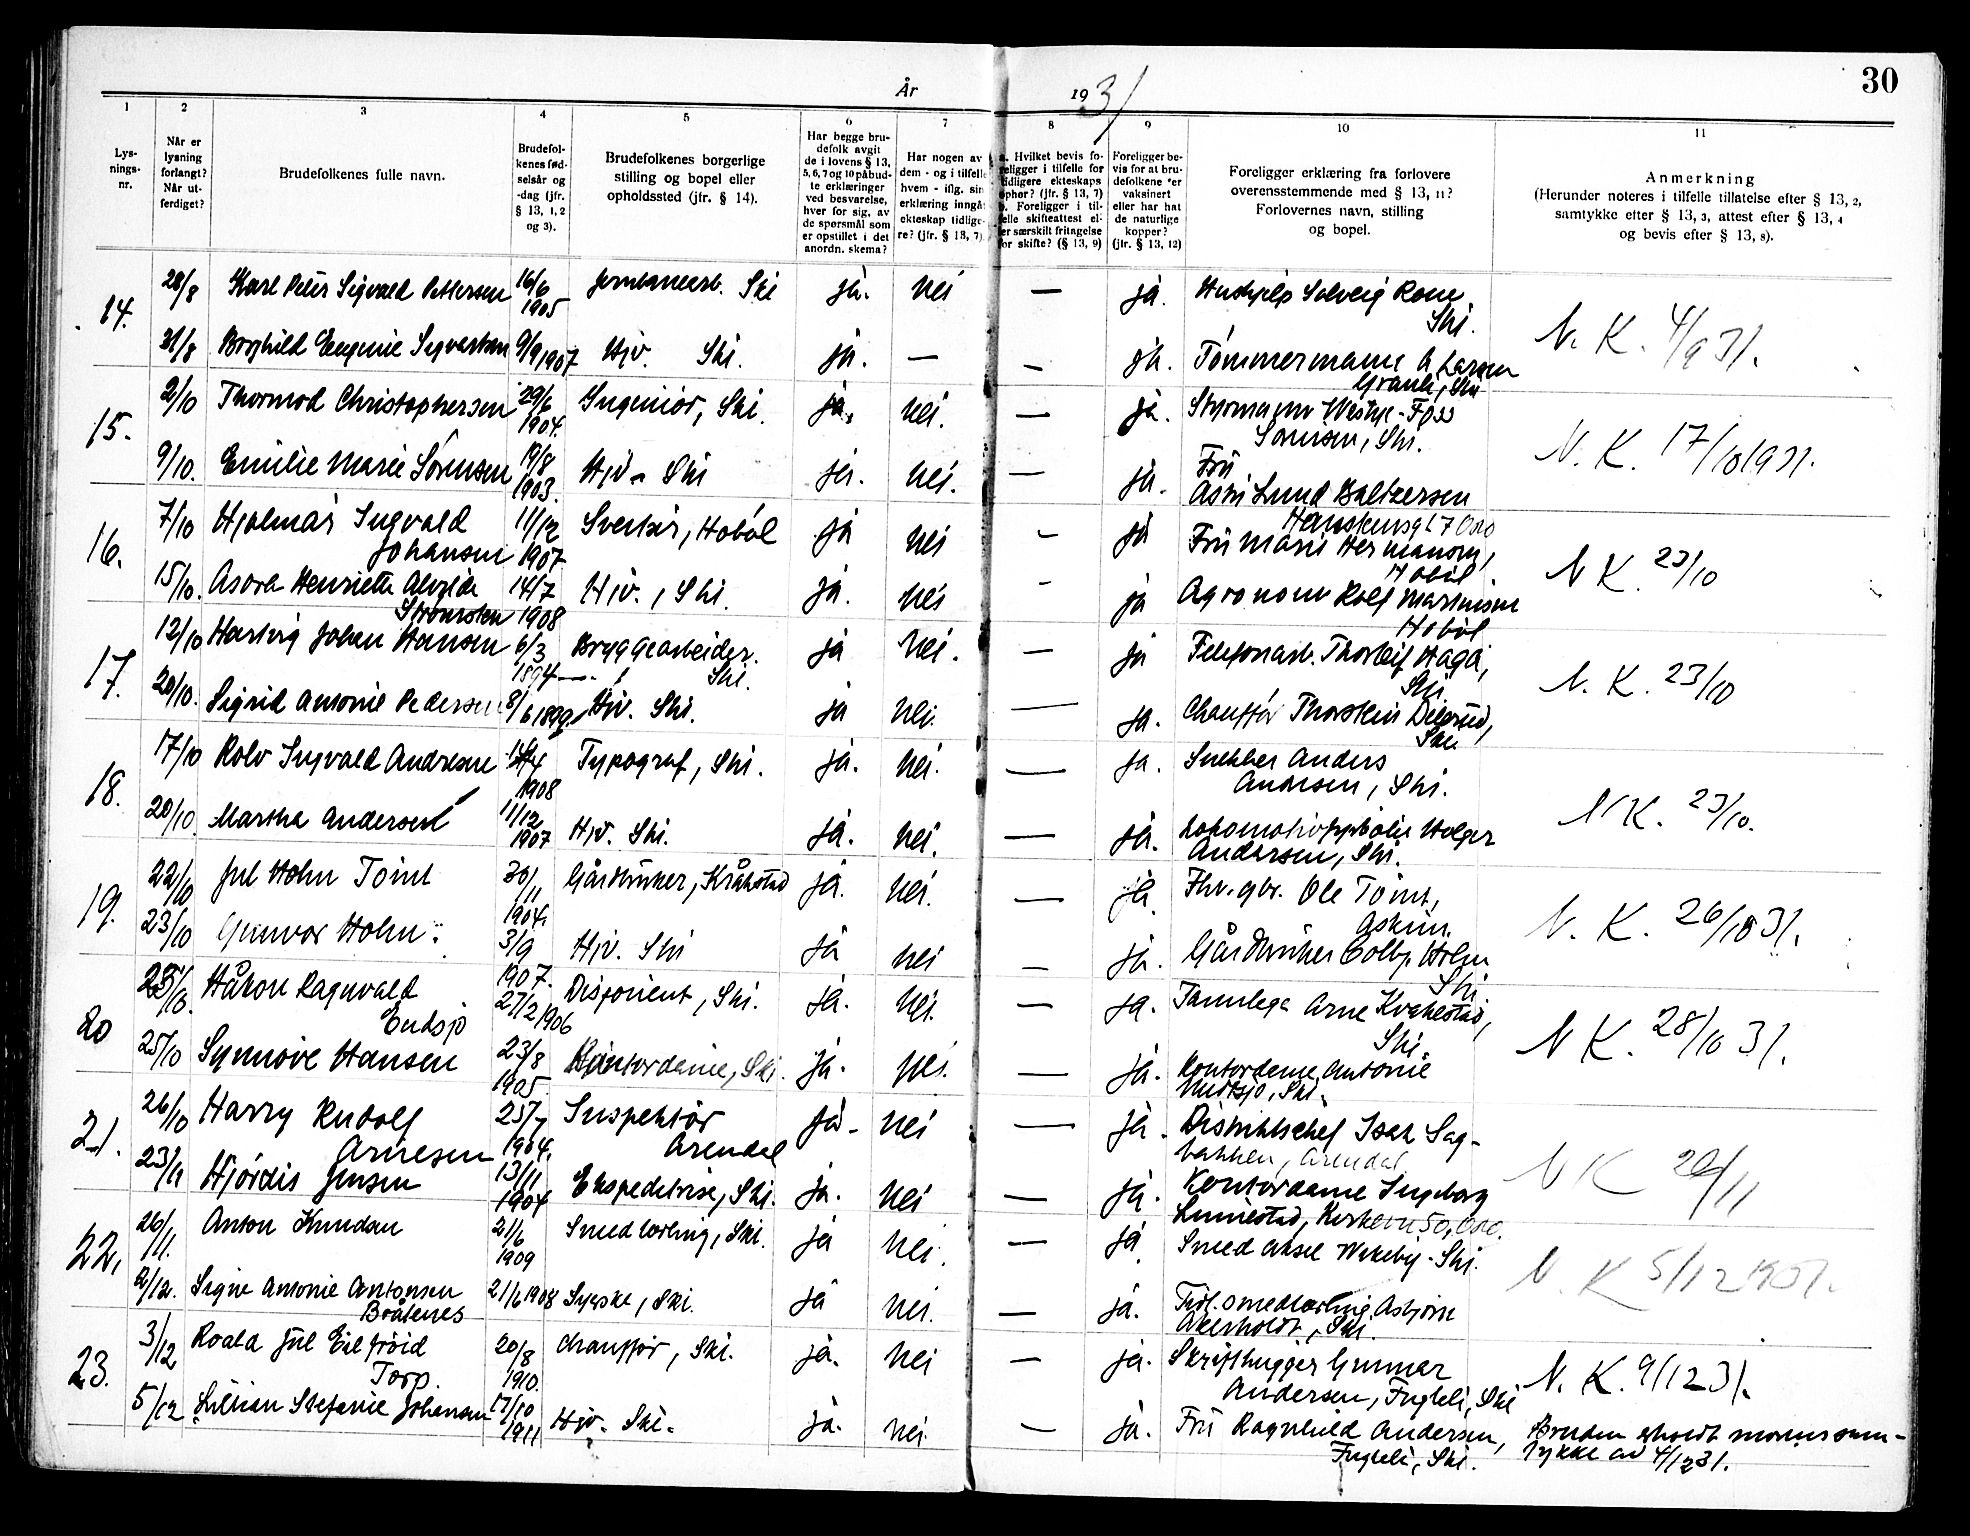 30
År 1931
1 2 3 4 5 6 7 8 9 10 11
Lys-
nings-
nr.
Når er
lysning
forlangt?
Når ut-
ferdiget?
Brudefolkenes fulle navn.
Brudefol-
kenes fød-
selsår og
-dag (jfr.
§ 13, 1, 2
og 3).
Brudefolkenes borgerlige
stilling og bopel eller
opholdssted (jfr. § 14).
Har begge bru-
defolk avgit
de i lovens § 13,
5, 6, 7 og 10 påbud-
te erklæringer
ved besvarelse,
hver for sig, av
de spørsmål som
er opstillet i det
anordn. skema?
Har nogen av
dem - og i tilfelle
hvem - iflg. sin
erklæring inngå
ekteskap tidlige-
re? (jfr. § 13, 7)
a. Hvilket bevis fo-
religger i tilfelle for
tidligere ekteskaps
ophør? (jfr. § 13, 7)
b. Foreligger i til-
felle skifteattest el-
er særskilt fritagelse
for skifte? (§ 13, 9)
Foreligger be-
vis for at bru-
defolkene er
vaksinert
eller har hat
de naturlige
kopper?
(jfr. § 13, 12)
Foreligger erklæring fra forlovere
overensstemmende med § 13, 11?
Forlovernes navn, stilling
og bopel.
Anmerkning
(Herunder noteres i tilfelle tillatelse efter § 13, 2,
samtykke efter § 13, 3, attest efter § 13, 4
og bevis efter § 13, 8).
14. 28/8 Karl Peter Sigvald Pettersen 16/6 1905 Jernbanearb. Ski ja. nei — ja. Hushjelp Solveig Roen, Ski. N. K. 4/9 31.
31/8 Borghild Eugenie Syvertsen 9/9 1907 Hjv. Ski. ja. — — ja. Tømmermann A Larsen
Granli, Ski
15. 2/10 Thormod Christophersen 29/6 1904. Ingeniør, Ski. ja. nei. — ja. Styrmann
Sørensen, Ski. N. K. 17/10 1931.
9/10. Emilie Marie Sørensen 19/8 1903. Hjv - Ski ja. nei. — ja. Fru
Astri Lund Baltzersen
17 Oslo
16. 7/10 Hjalmar Ingvald
Johansen 11/12 1907 Sveiser, Hobøl ja nei - ja Fru Marie Hermansen,
Hobøl. N K. 23/10
15/10. Asora Henriette Alvilde
Strømsten 14/7 1908 Hjv., Ski. ja. nei - ja Agronom Rolf Martinsen
Hobøl
17. 12/10 Hartvig Johan Hansen 6/3 1894 Bryggearbeider.
Ski. ja nei. — ja Telefonarb. Thorleif Haga,
Ski. N. K. 23/10
20/10. Sigrid Antonie Pedersen 8/6 1899 Hjv. Ski. ja nei. — ja. Chauffør Thorstein
Ski.
18. 17/10 Rolv Ingvald Andresen 1908 Typograf, Ski. ja. nei. — ja. Snekker Anders
Andresen, Ski. N K. 23/10.
20/10. Martha Andersen 11/12 1907 Hjv. Ski. ja. nei. — ja. Lokomotivfyrbøter Holger
Andersen, Ski.
19. 22/10 Jul Holm Tømt 30/11 1904. Gårdbruker, Kråkstad ja. nei. — ja. Fhv. gbr. Ole Tømt,
Askim. N. K. 26/10 31.
23/10 Gunvor Holm. 3/9 1907. Hjv. Ski ja nei — ja. Gårdbruker Holm
Ski
20 23/10. Håkon Ragnvald
Endsjø 27/2 1906 Disponent, Ski. ja. nei. — ja. Tannlege Arne Kråkestad,
Ski. N K. 28/10 31.
25/10 Synnøve Hansen 23/8 1905. Kontordame, Ski. ja. nei. — ja. Kontordame Antonie
Ski.
21. 26/10 Harry Rudolf
Arnesen 25/7 1904. Inspektør
Arendal ja - nei — ja. Distriktschef Isak Sag-
bakken, Arendal N K 20/11
23/11 Hjørdis Jensen 13/11 1904 Ekspeditrise, Ski. ja. nei — ja. Kontordame Ingeborg
Linnestad, 50, Oslo.
22. 26/11. Anton Knudsen 21/6 1909 Smedlærling, Ski. ja nei. — ja Smed Aksel Wekeby - Ski. N. K 5/12 1931.
2/12. Signe Antonie Antonsen
Bråtenes 21/6 1908 Syerske, Ski. ja nei. — ja. Tidl. smedlærling Asbjørn
Akerholdt, Ski.
23. 3/12 Roald Jul Eilfrøid
Torp. 20/8 1910. Chauffør, Ski. ja. nei — ja. Skrifthugger Gunnar
Andersen, Fugleli, Ski N. K. 9/12 31.
5/12 Lillian Stefanie Johansen 17/10 1911 Hjv. Ski. ja. nei. — ja. Fru Ragnhild Andersen,
Fugleli, Ski. Bruden erholdt morens sam-
tykke av 4/12 31.